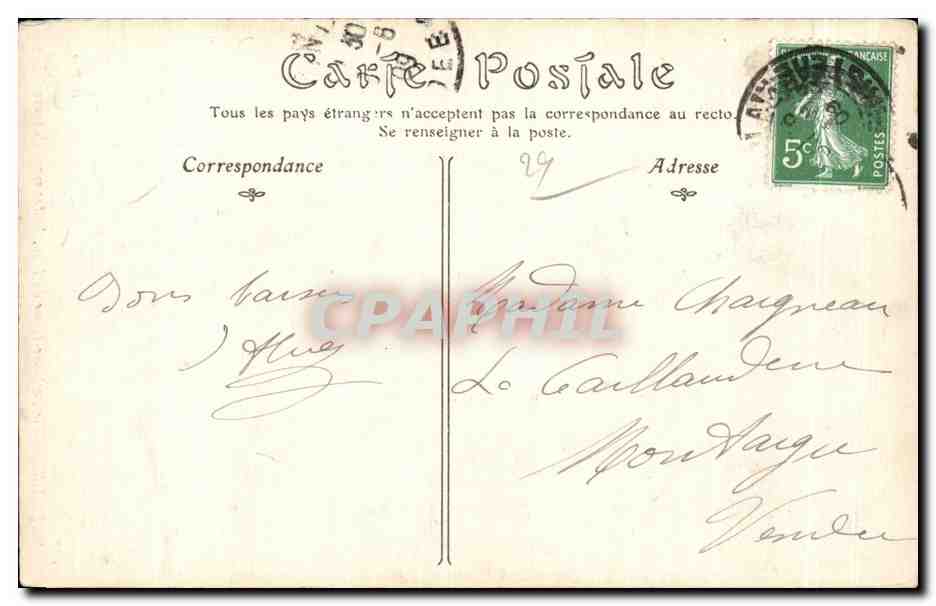 Carte Postale
Tous les pays étrangers n'acceptent pas la correspondance au recto.
Se renseigner à la poste.
Correspondance
29
Adresse
FRANÇAISE
5c
POSTES
30
-6
Bons baisers
Madame Chaigneau
La Taillauderie
Montaigu
Vendée
CPAPHIL